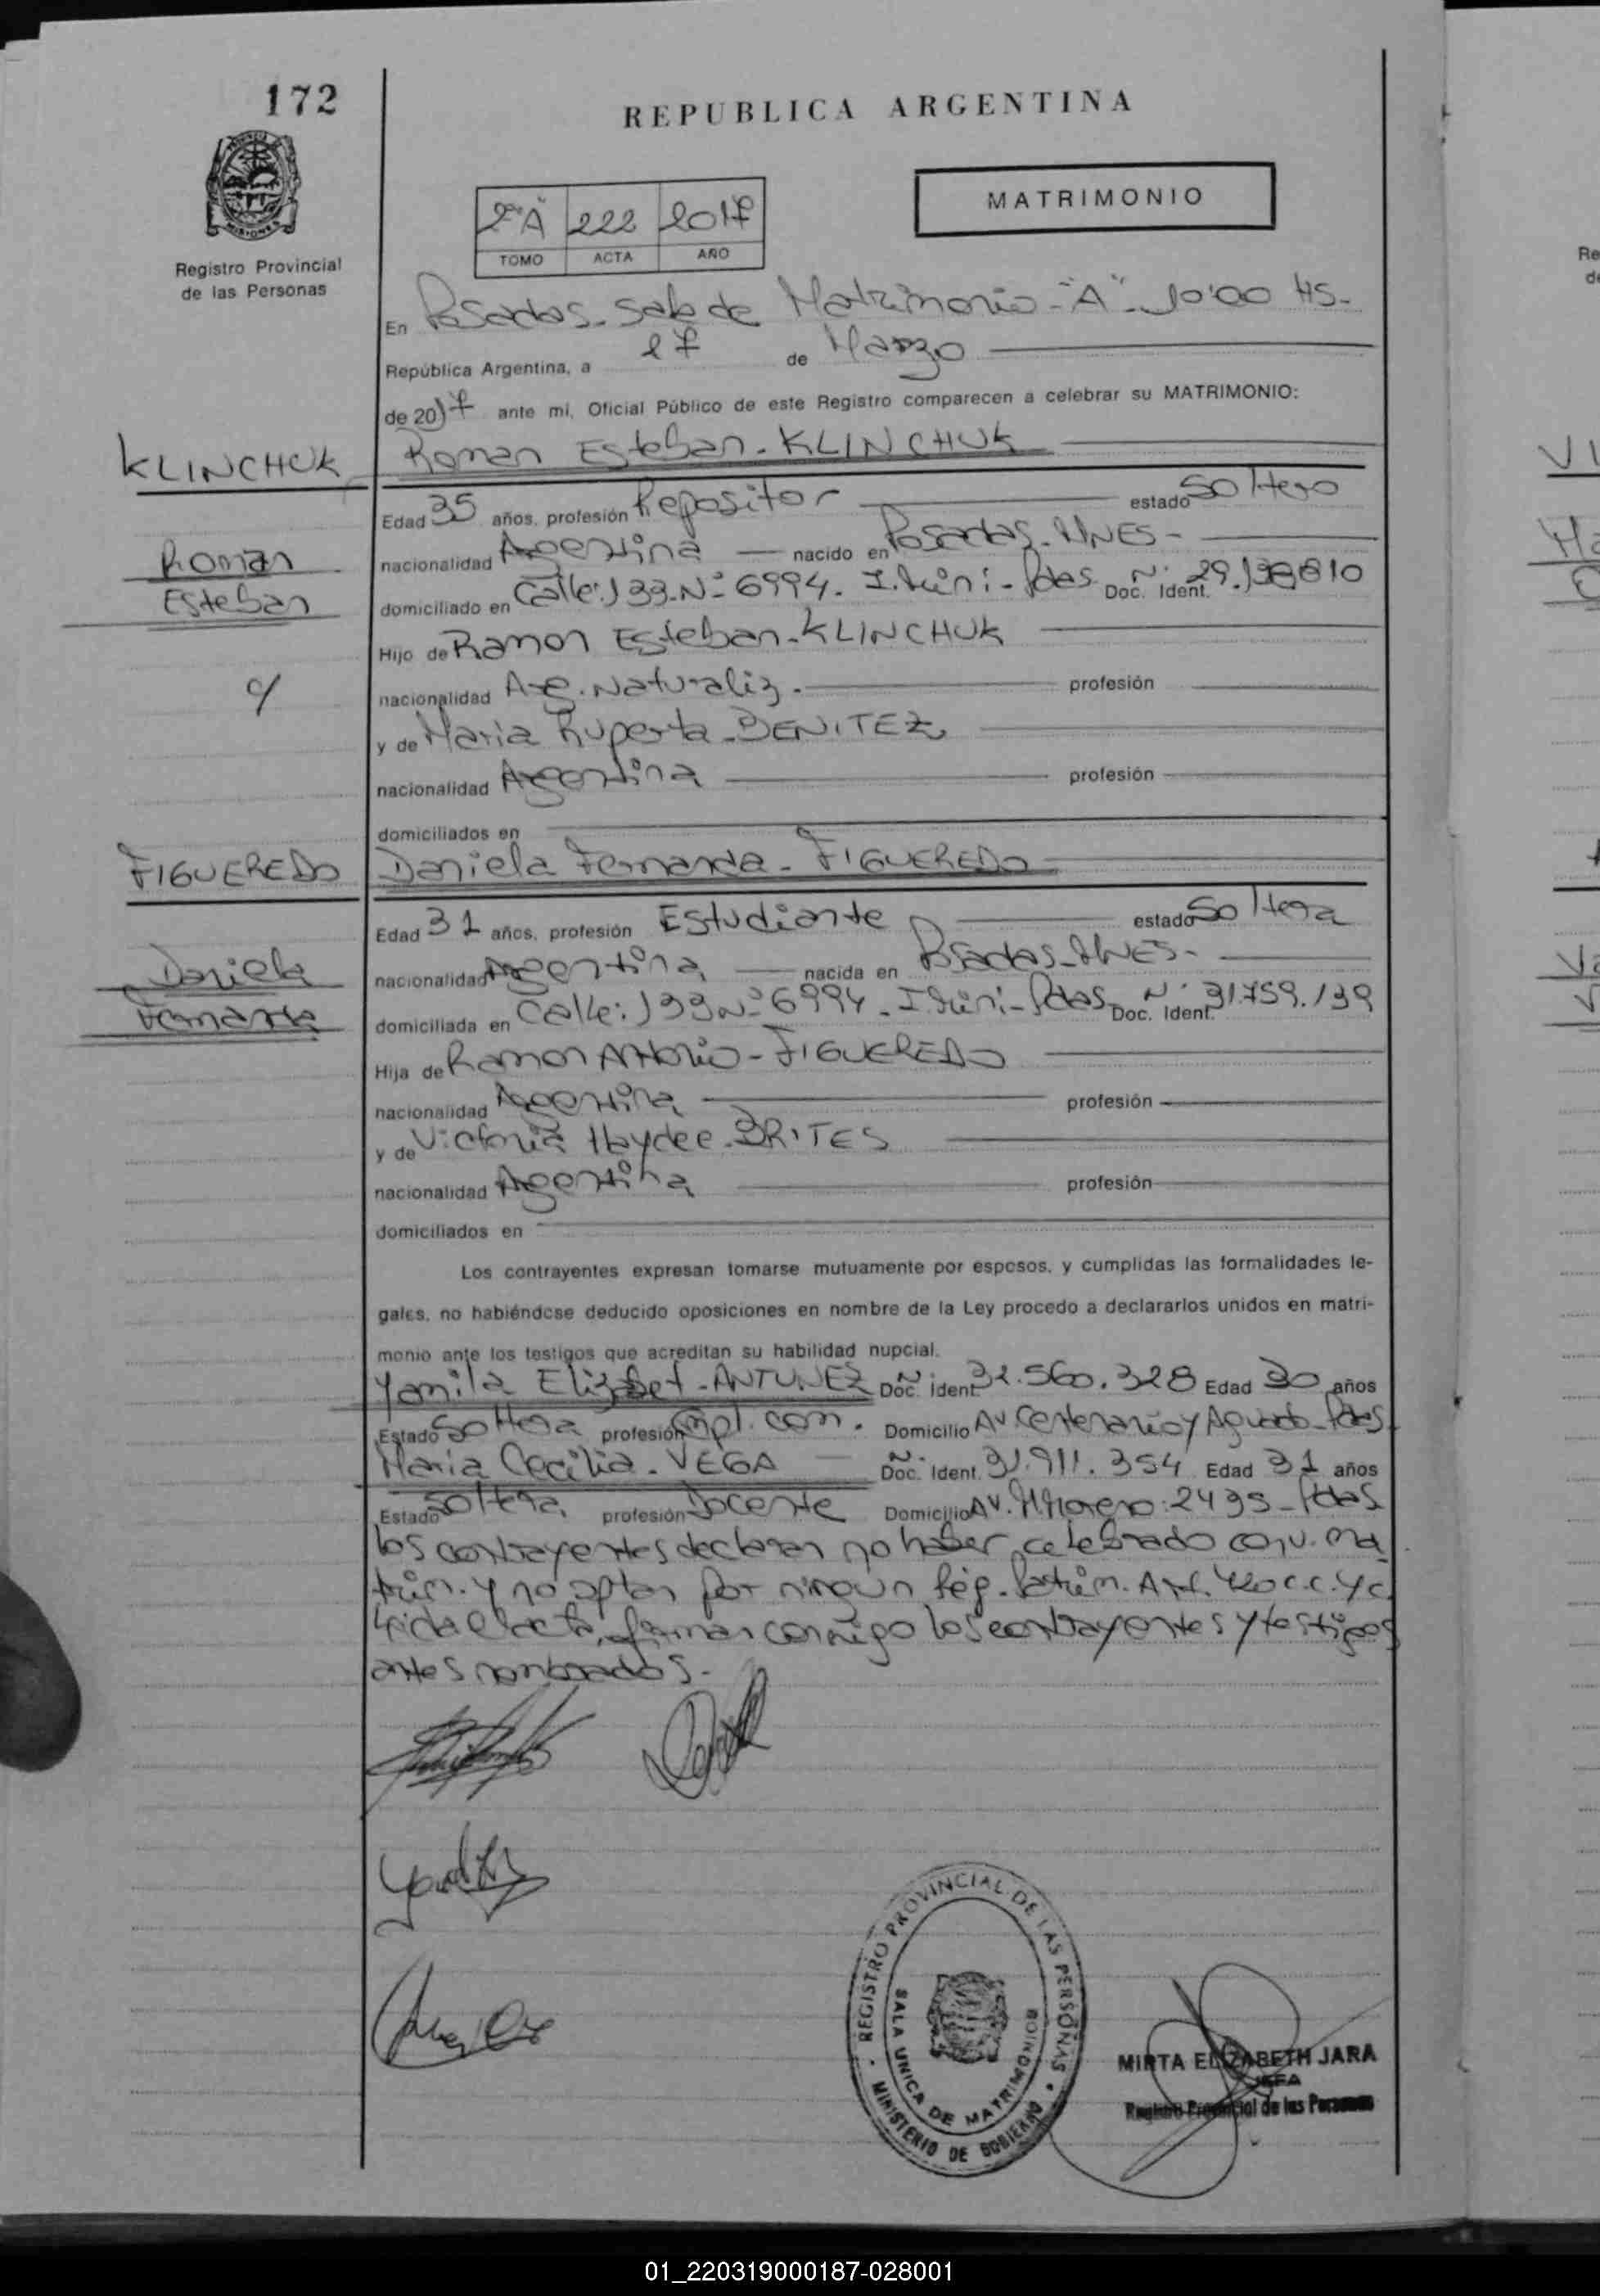 172
REPUBLICA ARGENTINA
MATRIMONIO
2º "A" 222 2017
TOMO ACTA AÑO
Registro Provincial
de las Personas
En Posadas - Sala de Matrimonio - "A" - 10:00 HS -
República Argentina, a 27 de Marzo
de 2017 ante mi, Oficial Público de este Registro comparecen a celebrar su MATRIMONIO:
KLINCHUK Roman Esteban - KLINCHUK
Edad 35 años, profesión Repositor estado Soltero
Roman nacionalidad Argentina nacido en Posadas - MNES -
Esteban domiciliado en Calle: 133 - Nº 6994 - I. - Pdas Doc. Ident. Nº 29.138810
Hijo de Ramon Esteban - KLINCHUK
c/ nacionalidad Arg. Naturaliz. profesión
y de Maria Ruperta - BENITEZ
nacionalidad Argentina profesión
domiciliados en
FIGUEREDO Daniela Fernanda - FIGUEREDO
Edad 31 años, profesión Estudiante estado Soltera
Daniela nacionalidad Argentina nacida en Posadas - MNES -
Fernanda domiciliada en Calle: 133 Nº 6994 - I. - Pdas Doc. Ident. Nº 31.759.139
Hija de Ramon Antonio - FIGUEREDO
nacionalidad Argentina profesión
y de Victoria Haydee - BRITES
nacionalidad Argentina profesión
domiciliados en
Los contrayentes expresan tomarse mutuamente por esposos, y cumplidas las formalidades le-
gales, no habiéndose deducido oposiciones en nombre de la Ley procedo a declararlos unidos en matri-
monio ante los testigos que acreditan su habilidad nupcial.
Yamila Elizabet - ANTUNEZ Doc. Ident. 32.560.328 Edad 30 años
Estado Soltera profesión Empl. com. Domicilio Av Centenario y Aguado - Pdas
Maria Cecilia - VEGA Doc. Ident. 31.911.354 Edad 31 años
Estado Soltera profesión Docente Domicilio Av. M. Moreno: 2495 - Pdas
los contrayentes declaran no haber celebrado conv. ma
trim. y no optan por ningun Rég. Patrim. Art. 420 c.c. y c.
Leida el acta, firman conmigo los contrayentes y testigos
antes nombrados. -
REGISTRO PROVINCIAL DE LAS PERSONAS
SALA UNICA DE MATRIMONIOS
MINISTERIO DE GOBIERNO
MIRTA ELIZABETH JARA
JEFA
Registro Provincial de las Personas
01_220319000187-028001